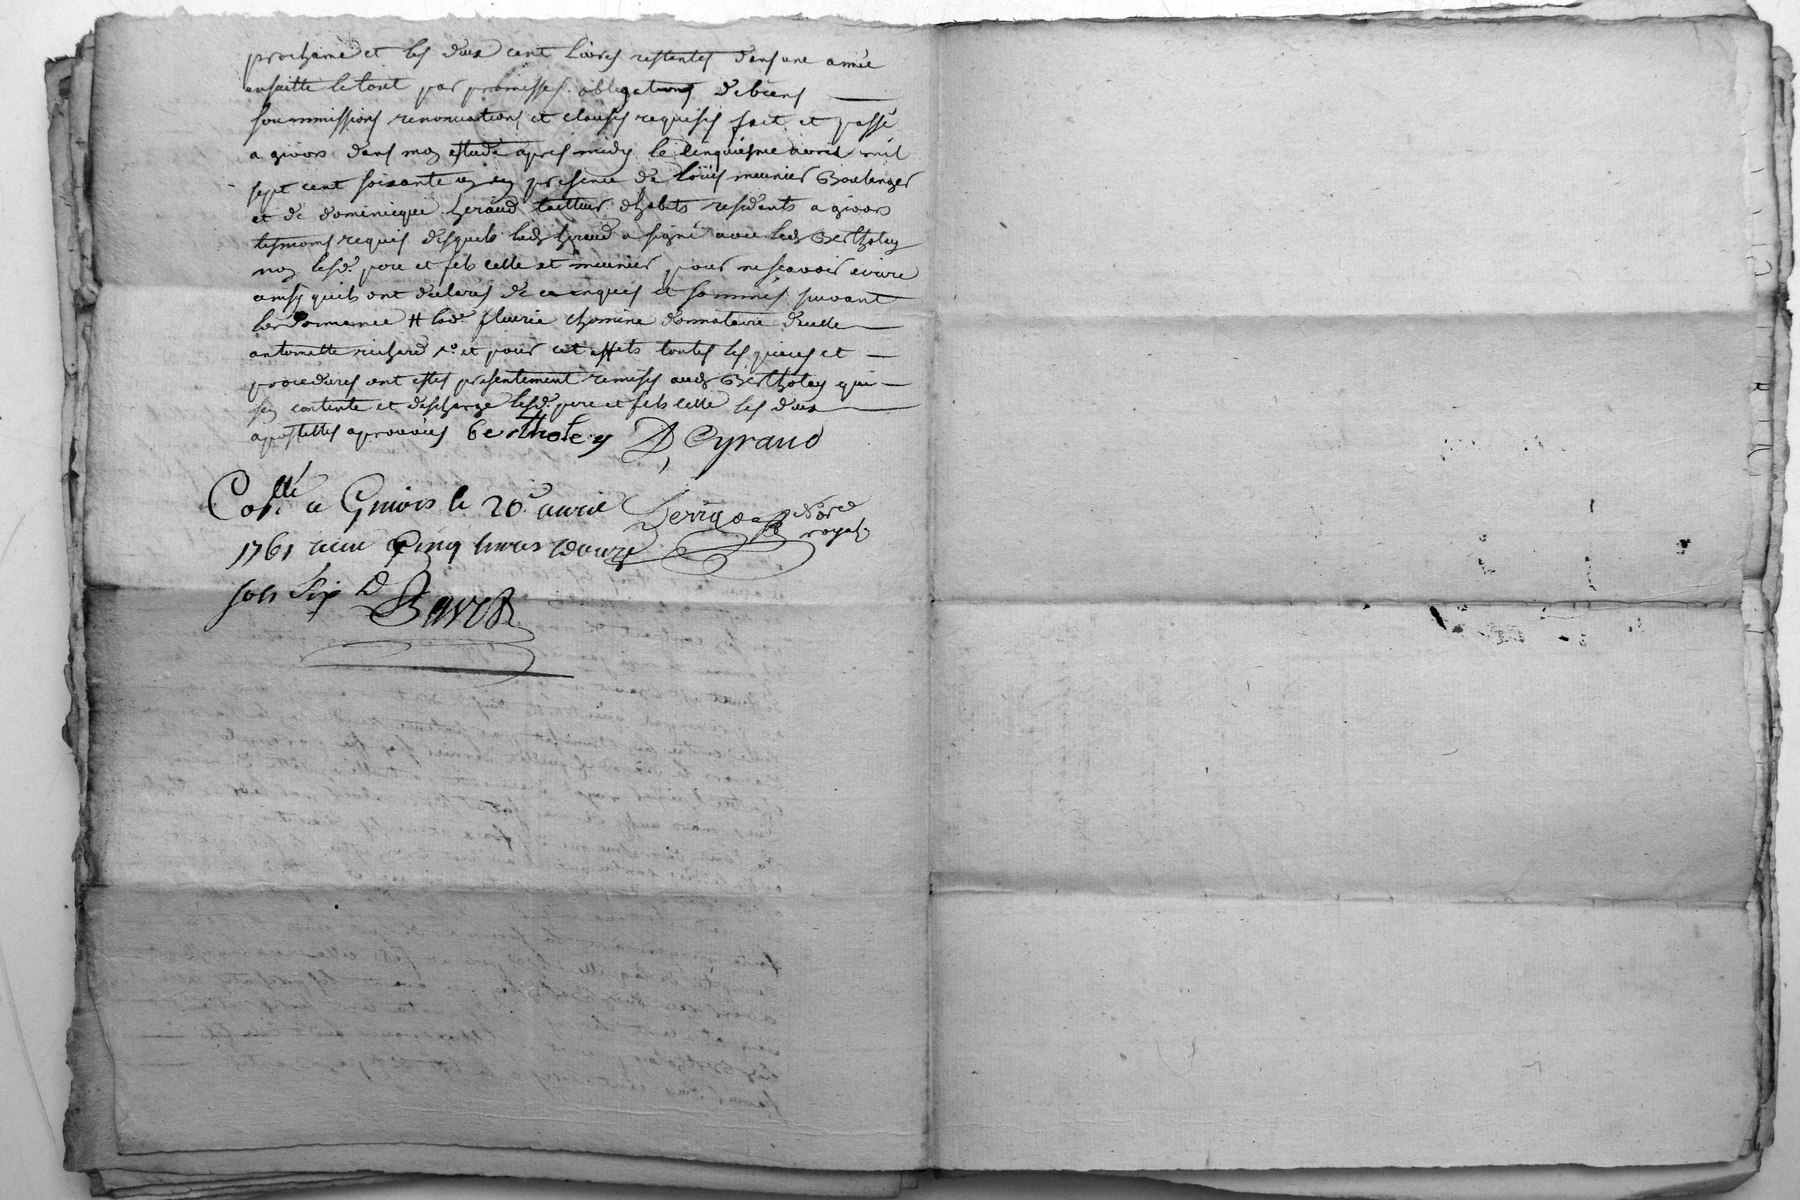 prochaine et les deux cent livres restantes dans une année
ensuitte le tout par promisses obligations de biens
soummissions renonciations et clauses requises fait et passé
a givors dans mon estude apres midy le cinquiesme avril mil
sept cent soixante un en presence de loüis meunier Boulanger
et de dominicque heraud tailleur dhabits residents a givors
tesmoins requis desquels ledt heraud a signé avec ledt Bertholey
non lesd. pere et fils celle et meunier pour ne scavoir ecrire
ainsy quils ont declarés de ce enquis et sommés suivant
lordonnance # lade. fleurie chomine donnataire dicelle
antoinette richard et pour cet effets toutes les pieces et
procedures ont estes presentement remises audt Bertholey qui
sen contente et descharge lesd. pere et fils celle les deux
apostilles aprouvées bertholey D Eyraud
Collé a Givors le 20e avril
1761 reçu Cinq livres douze
sols six D
Nore
royal